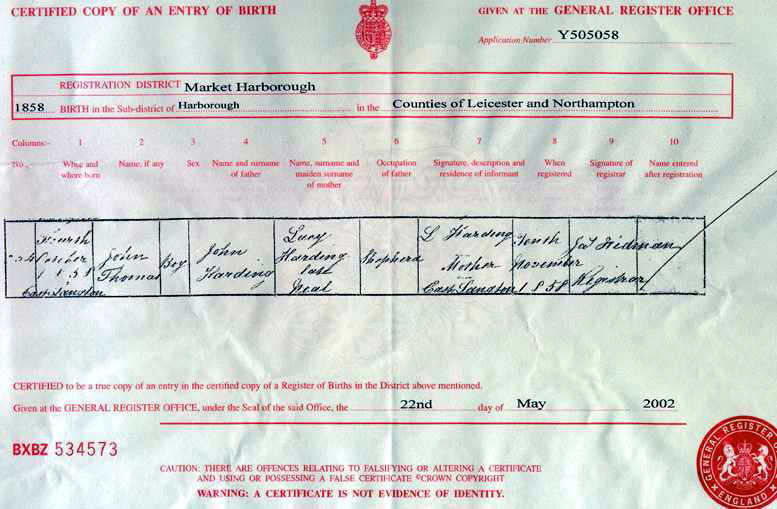 CERTIFIED COPY OF AN ENTRY OF BIRTH
GIVEN AT THE GENERAL REGISTER OFFICE
Application Number Y505058
REGISTRATION DISTRICT Market Harborough
1858 BIRTH in the Sub-district of Harborough in the Counties of Leicester and Northampton
Columns:- 1 2 3 4 5 6 7 8 9 10
No. When and where born
Name, if any
Sex
Name and surname of father
Name, surname and maiden surname of mother
Occupation of father
Signature, description and residence of informant
When registered
Signature of registrar
Name entered after registration
Fourth
October
1858
East Langton
John
Thomas
Boy
John
Harding
Lucy
Harding
late
Neal
Shepherd
L Harding
Mother
East Langton
Tenth
November
1858
Registrar
CERTIFIED to be a true copy of an entry in the certified copy of a Register of Births in the District above mentioned.
Given at the GENERAL REGISTER OFFICE, under the Seal of the said Office, the 22nd day of May 2002
BXBZ 534573
CAUTION: THERE ARE OFFENCES RELATING TO FALSIFYING OR ALTERING A CERTIFICATE
AND USING OR POSSESSING A FALSE CERTIFICATE ©CROWN COPYRIGHT
WARNING: A CERTIFICATE IS NOT EVIDENCE OF IDENTITY.
GENERAL REGISTER OFFICE
ENGLAND